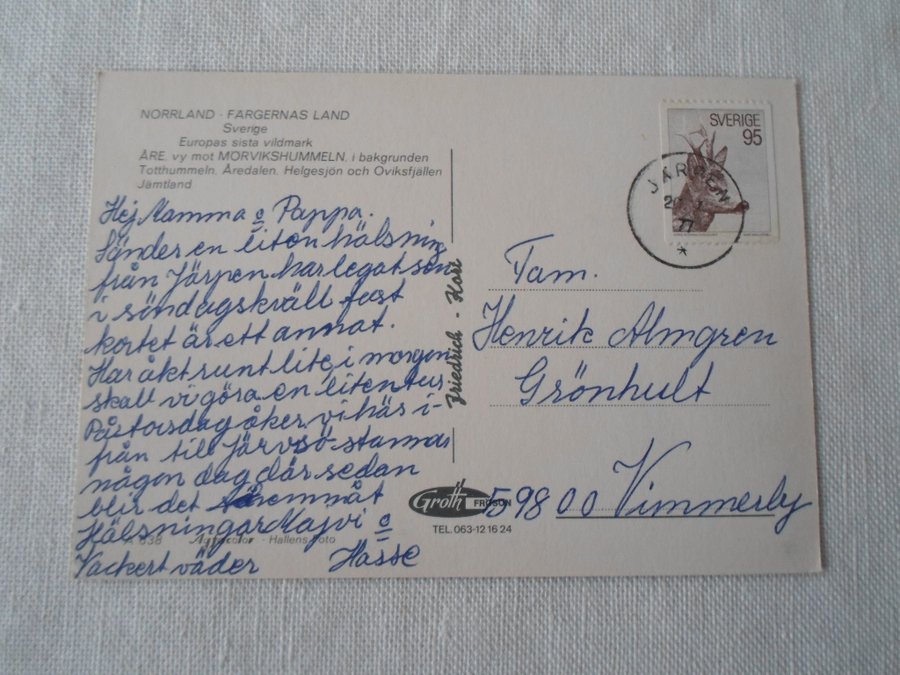 NORRLAND - FÄRGERNAS LAND
Sverige
Europas sista vildmark
ÅRE, vy mot MÖRVIKSHUMMELN, i bakgrunden
Totthummeln, Åredalen, Helgesjön och Oviksfjällen
Jämtland
Hej Mamma & Pappa.
Sänder en liten hälsning
från Järpen har legat sen
i söndagskväll fast
kortet är ett annat.
Har åkt runt lite, i morgon
skall vi göra en liten tur
På torsdag åker vi här i-
från till Järvsö stannar
någon dag där sedan
blir det hemmåt
Hälsningar Majvi &
Hasse
Vackert väder
638 - Hallens Foto
Friedrich - Kort
SVERIGE
95
JÄRPEN
77
Fam.
Henrik Almgren
Grönhult
598 00 Vimmerby
Groth FRÖSÖN
TEL. 063-12 16 24